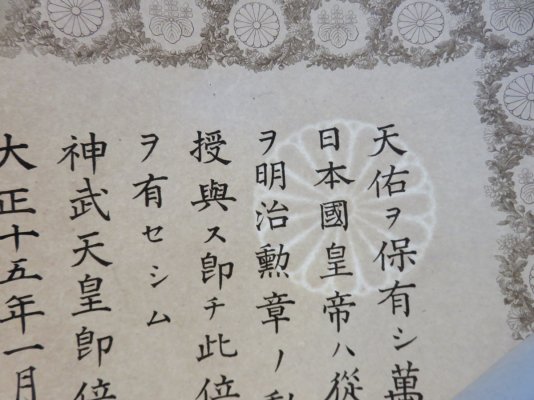 天佑ヲ保有シ萬
日本國皇帝ハ從
ヲ明治勲章ノ
授與ス即チ此
ヲ有セシム
神武天皇即
大正十五年一月